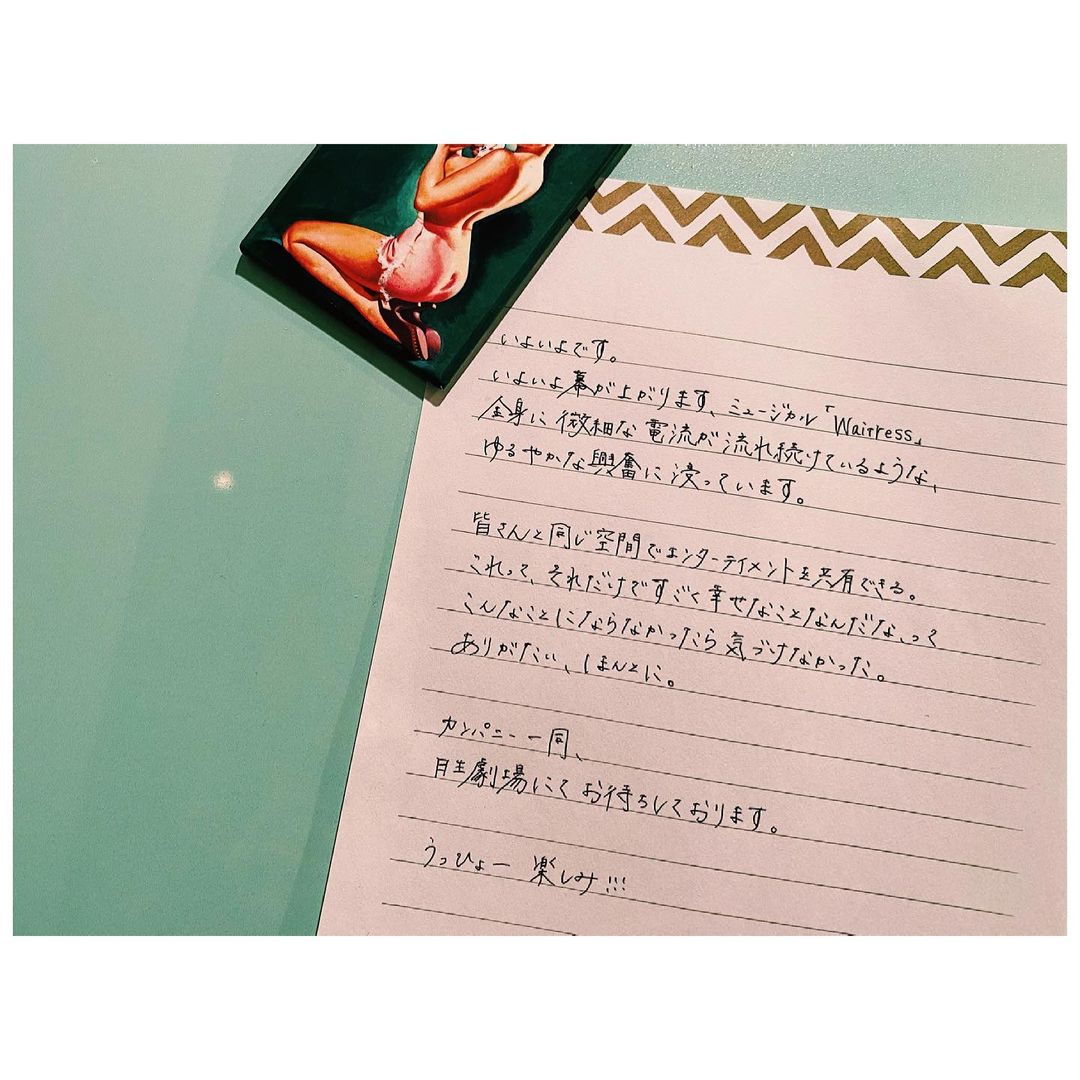 いよいよです。
いよいよ幕が上がります、ミュージカル「Waitress」
全身に微細な電流が流れ続けているような、
ゆるやかな興奮に浸っています。
皆さんと同じ空間でエンターテイメントを共有できる。
これって、それだけですごく幸せなことなんだな、って
こんなことにならなかったら気づけなかった。
ありがたい、ほんとに。
カンパニー一同、
日生劇場にてお待ちしております。
うっひょー 楽しみ!!!